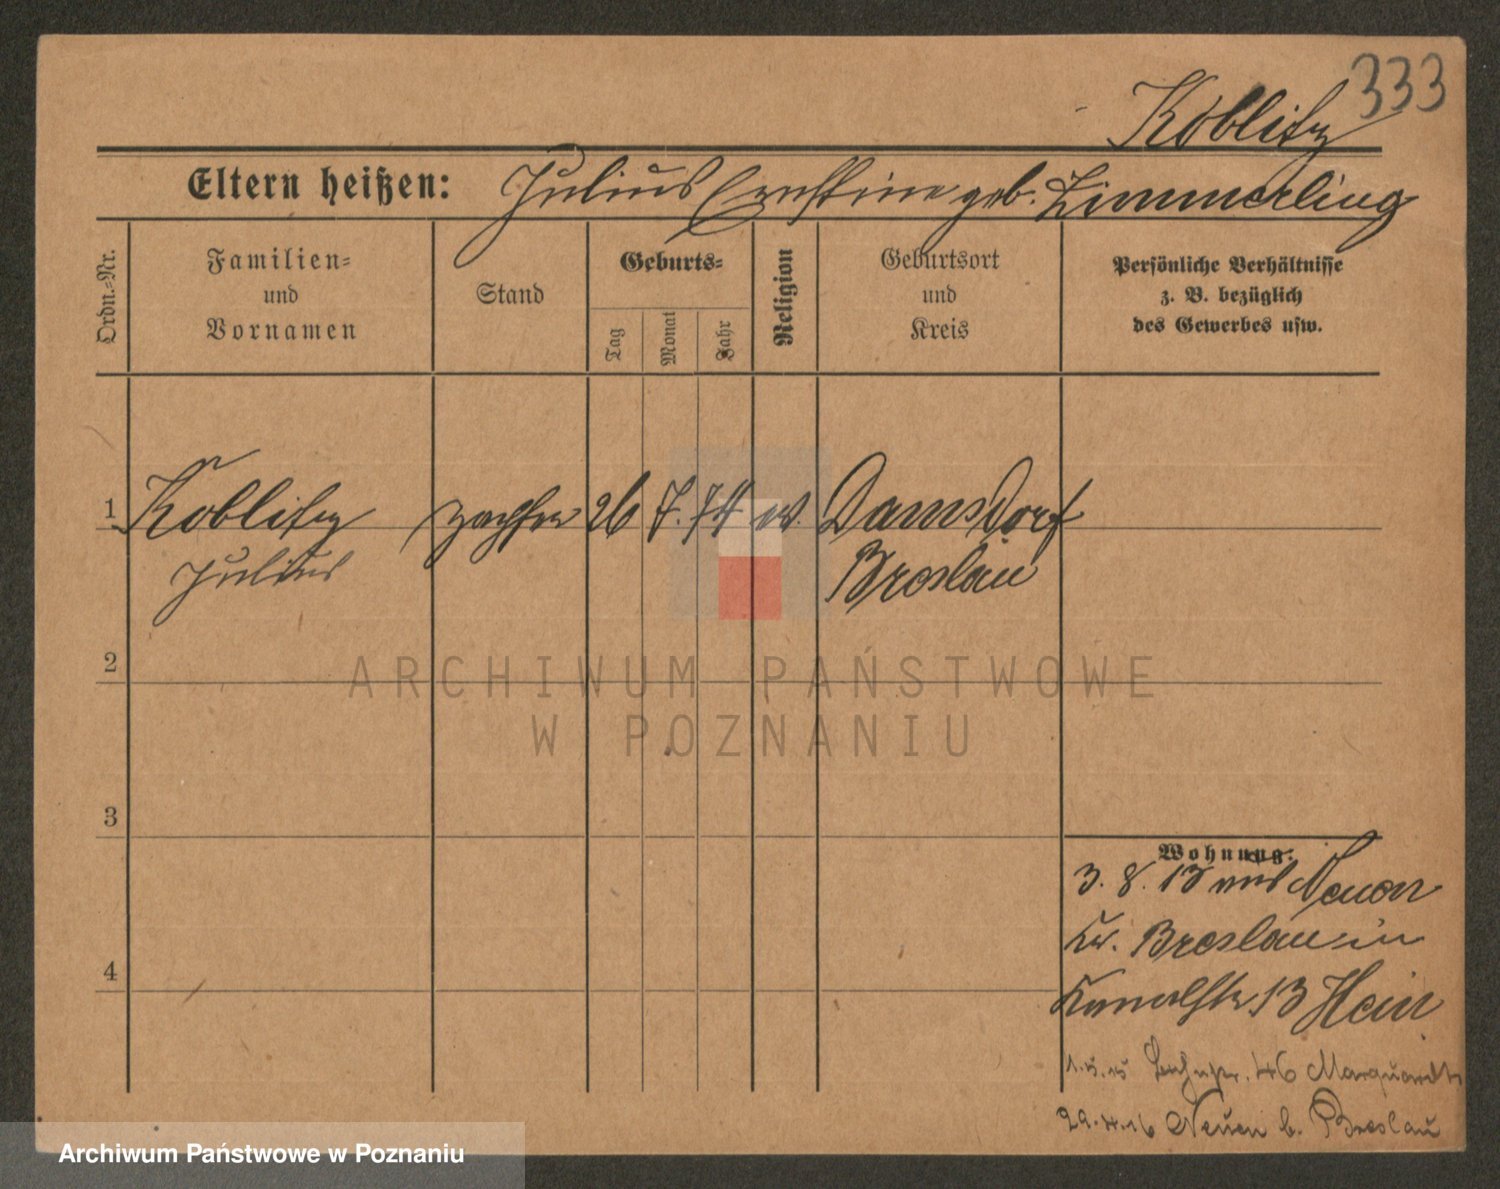 333
Koblitz
Eltern heißen: Julius Ernstine geb. Zimmerling
Ordn.-Nr.
Familien-
und
Vornamen
Stand
Geburts-
Tag
Monat
Jahr
Religion
Geburtsort
und
Kreis
Persönliche Verhältnisse
z. B. bezüglich
des Gewerbes usw.
1 Koblitz 26 7. 74 ev. Damsdorf
Julius Breslau
2
ARCHIWUM PAŃSTWOWE
W POZNANIU
3
Wohnung:
3. 8. 13 aus Neuen
Kr. Breslau in
4
Kanalstr 13 Hein
46 Marquardt
29.4.16 Neuen b. Breslau
Archiwum Państwowe w Poznaniu